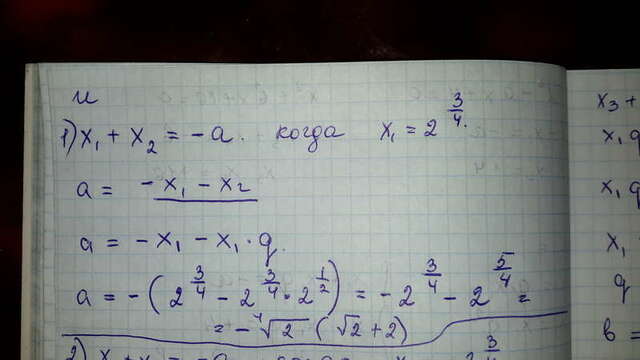 и
1) x₁ + x₂ = -a. когда x₁ = 2^{3/4}.
a = -x₁ - x₂
a = -x₁ - x₁·q.
a = -(2^{3/4} - 2^{3/4}·2^{1/2}) = -2^{3/4} - 2^{5/4} =
= -⁴√2 (√2 + 2)
2) x₁
x₃ +
x₁q
x₁q
x₁·
q
b =